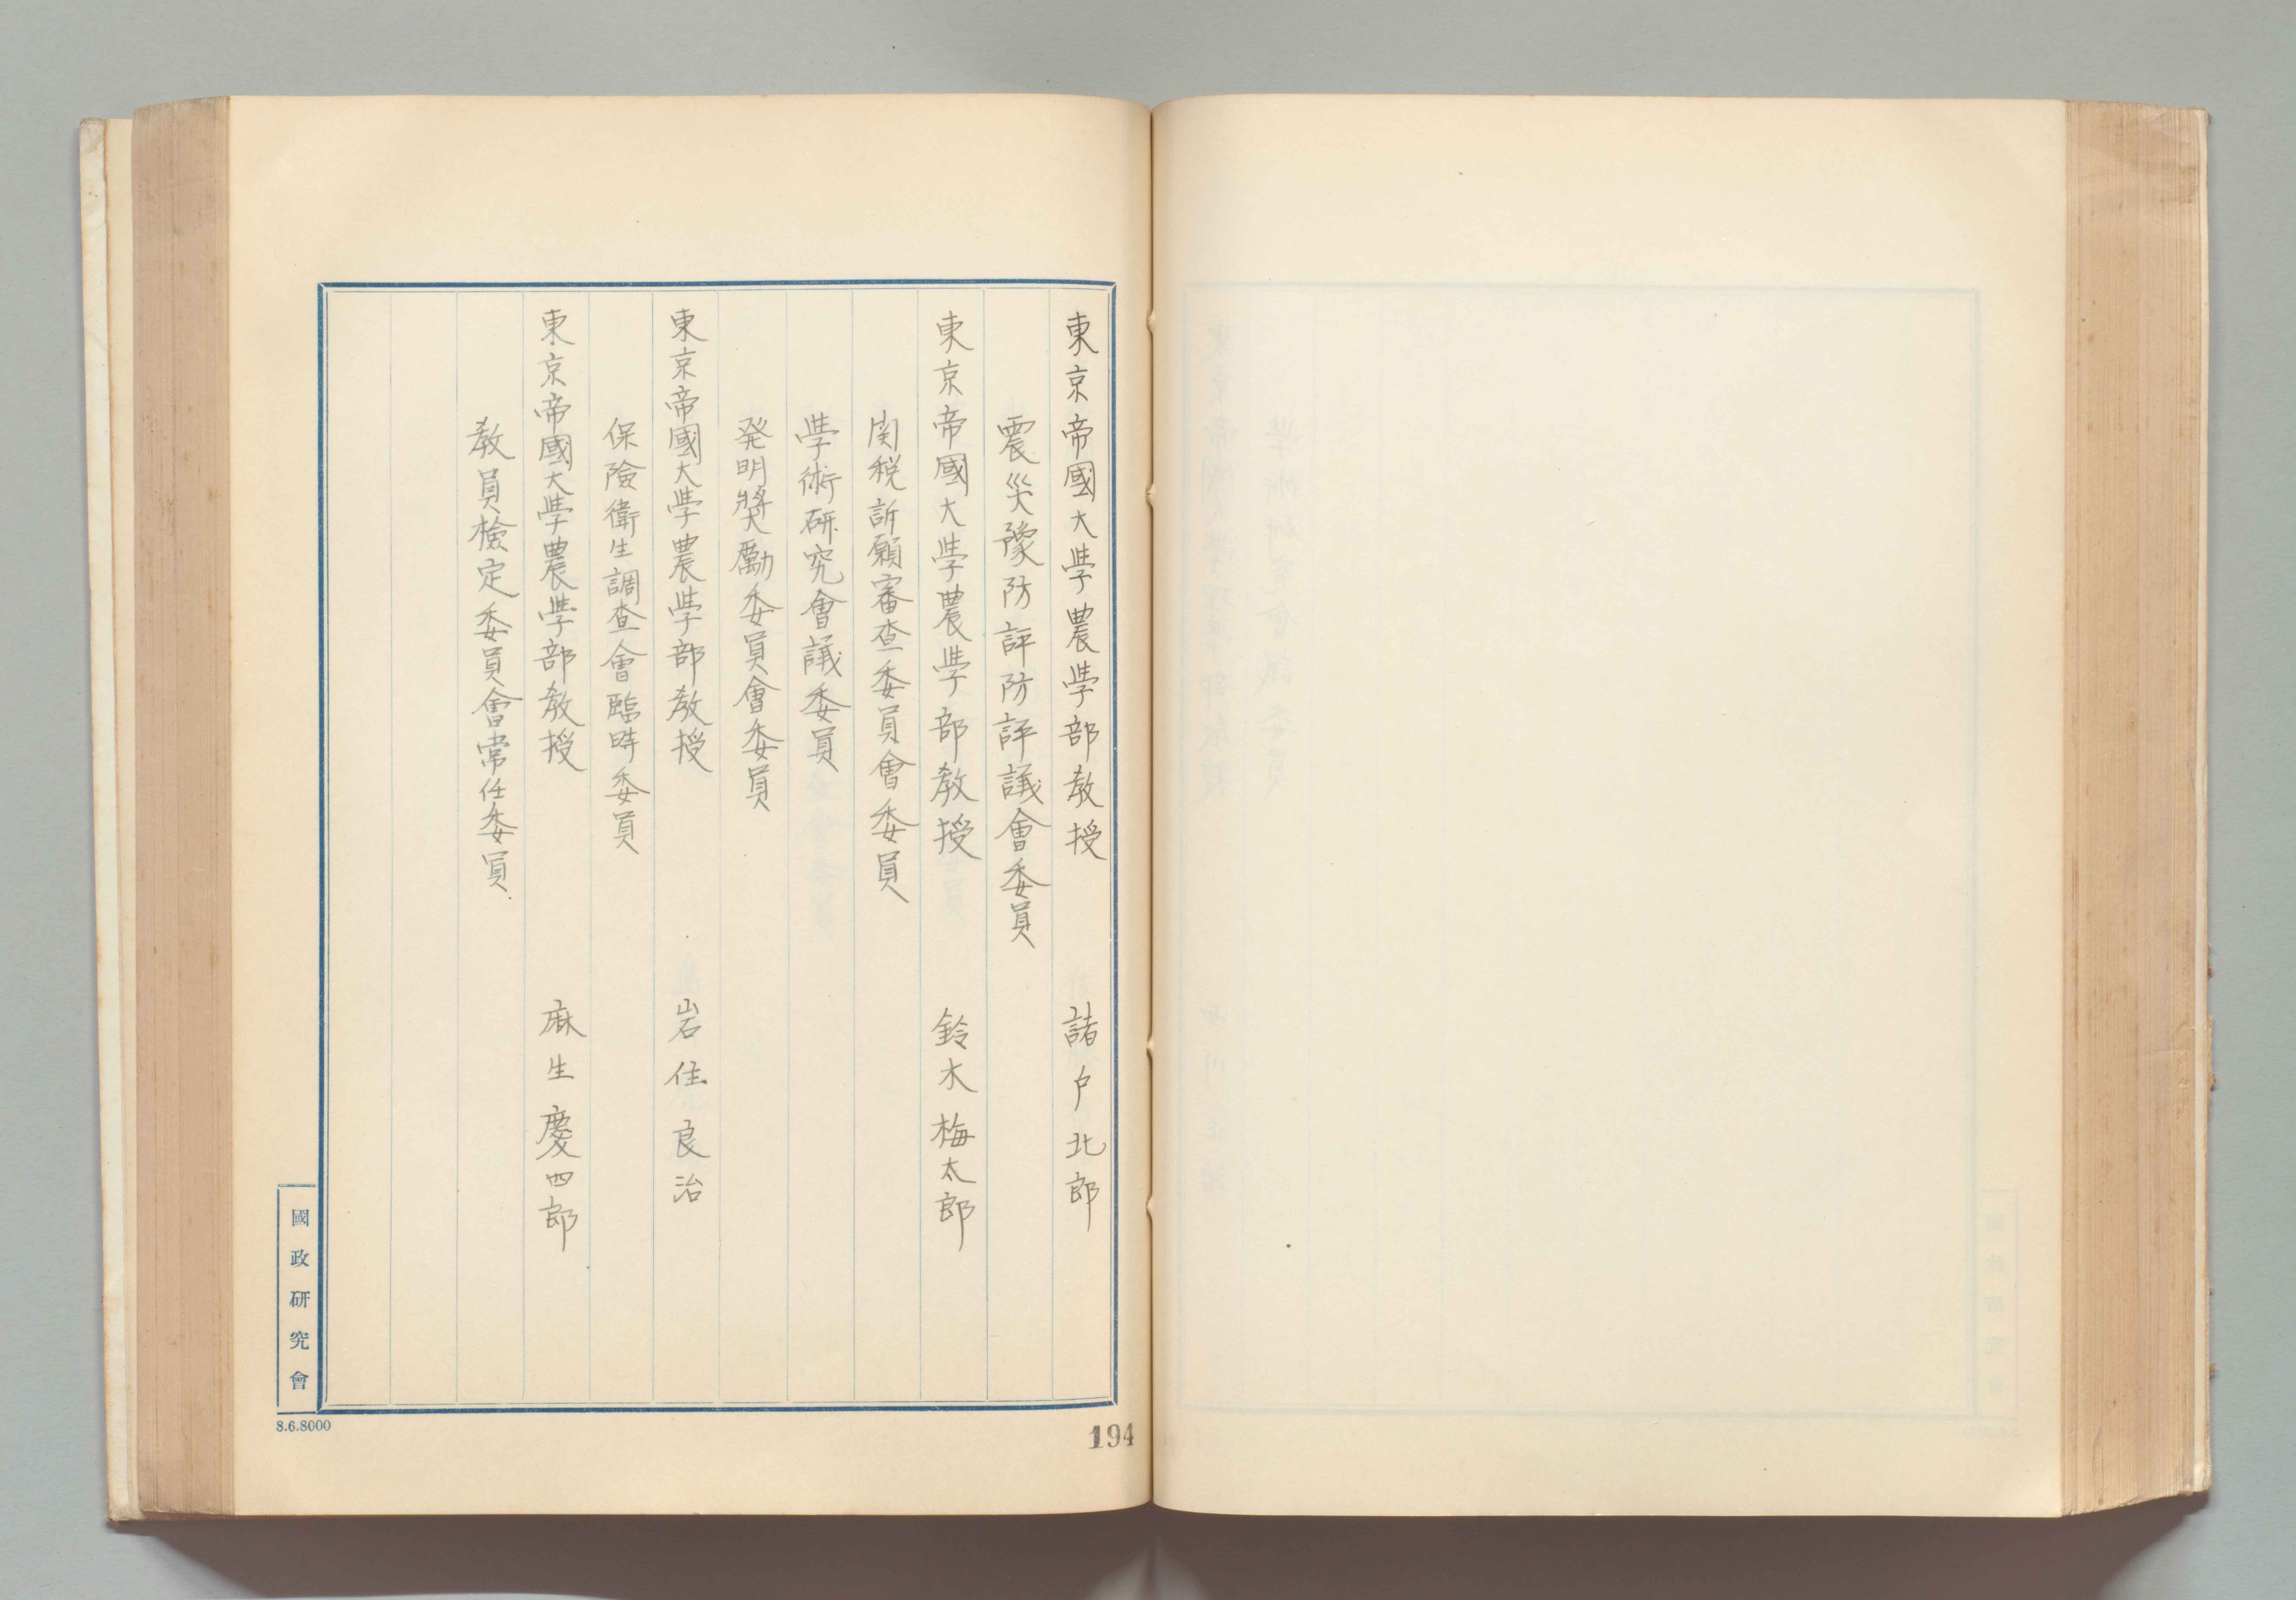 東京帝國大學農學部教授　諸戸北郎
震災豫防評防評議會委員
東京帝國大學農學部教授　鈴木梅太郎
関税訴願審查委員會委員
學術研究會議委員
発明奬勵委員會委員
東京帝國大學農學部教授　岩住良治
保險衛生調查會臨時委員
東京帝國大學農學部教授　麻生慶四郎
教員檢定委員會常任委員
國政研究會
8.6.8000
194